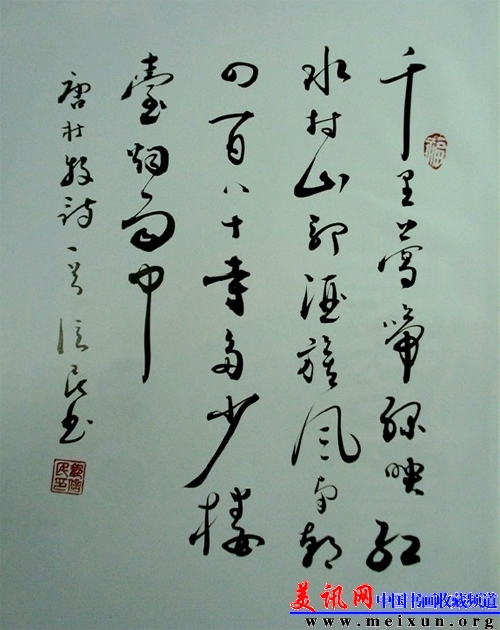 千里鶯啼綠映紅
水村山郭酒旗風南朝
四百八十寺多少樓
臺烟雨中
唐杜牧詩 信民书
美讯网 中国书画收藏频道
www.meixun.org